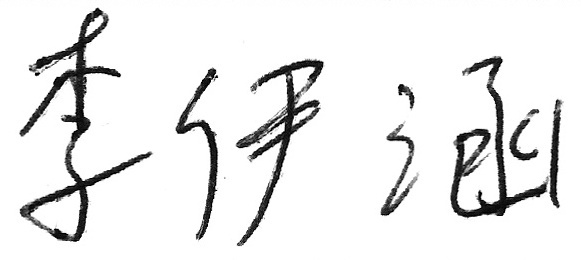 李伊涵